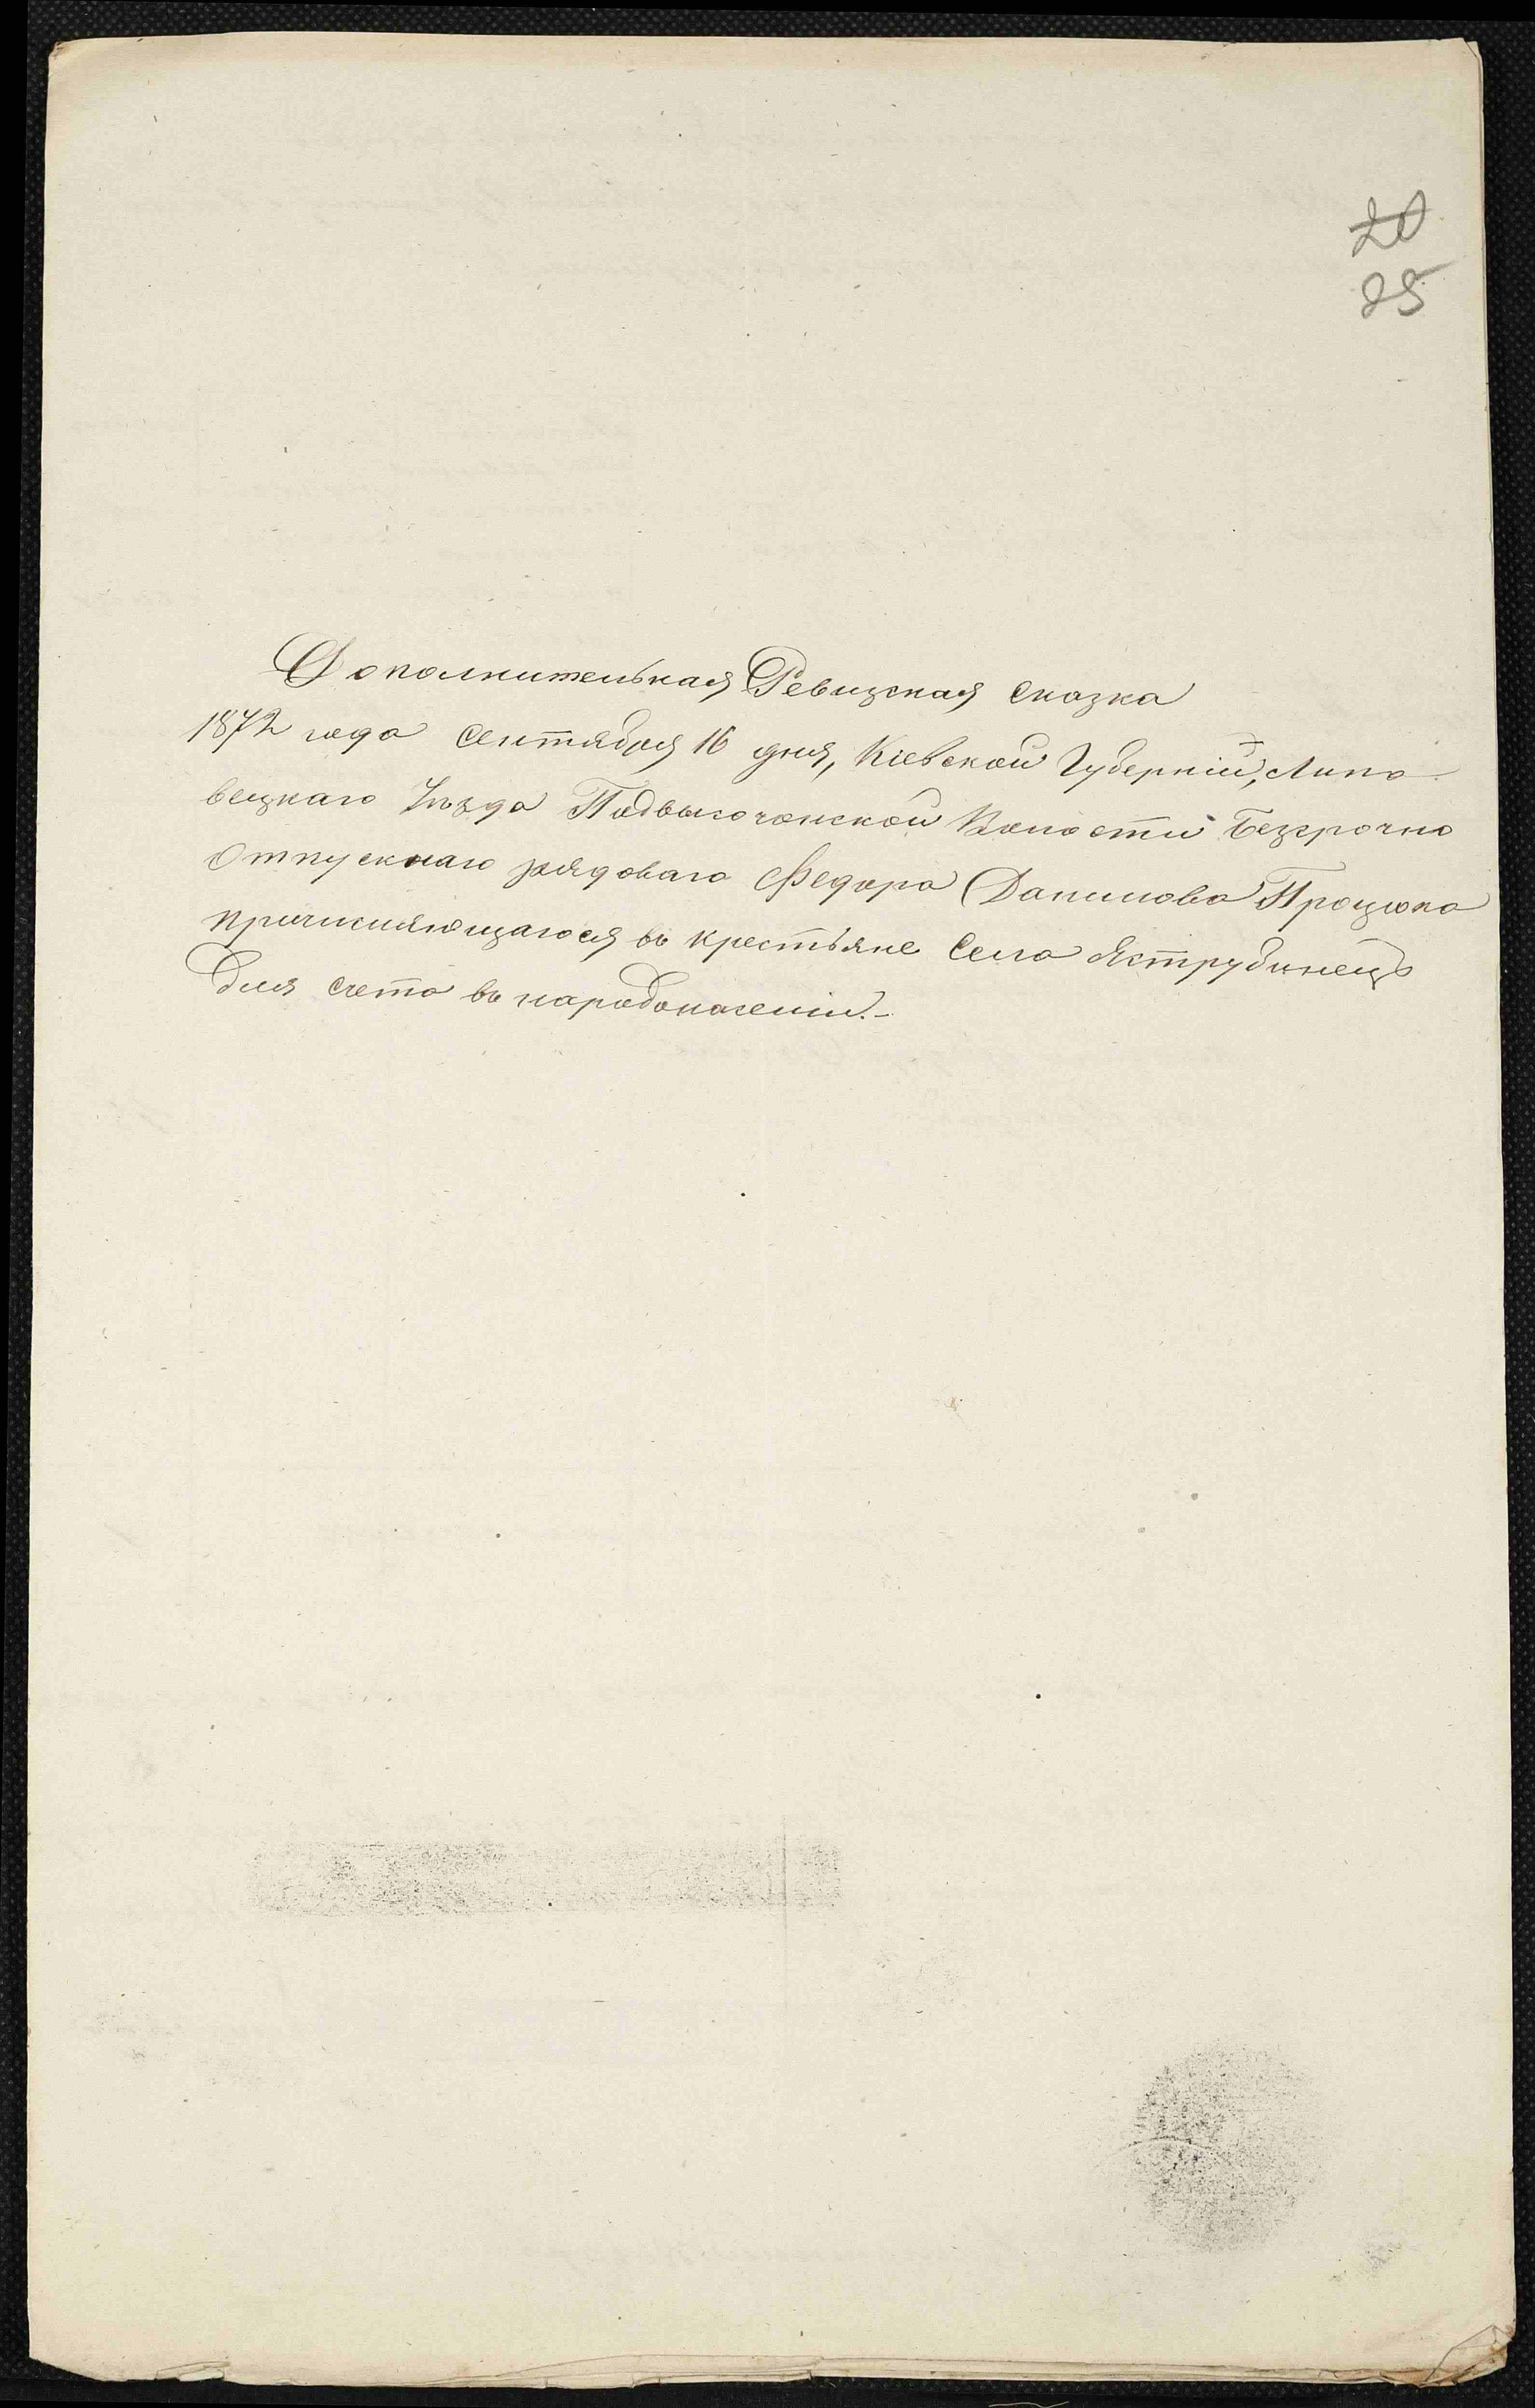 20
25
Дополнительная Ревизская сказка
1872 года Сентября 16 дня, Кіевской Губерніи, Липо-
вецкаго Уѣзда Подвысочанской Волости Безсрочно
Отпускнаго рядоваго Федора Данилова Процюка
причисляющагося въ крестьяне Села Яструбинецъ
для счета въ народонаселеніи.-